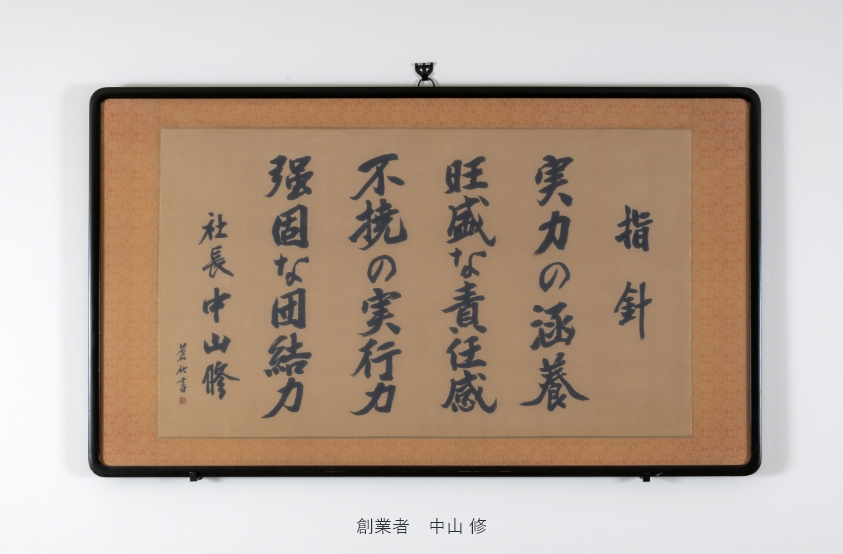 指針
実力の涵養
旺盛な責任感
不撓の実行力
强固な団結力
社長 中山修
創業者 中山 修